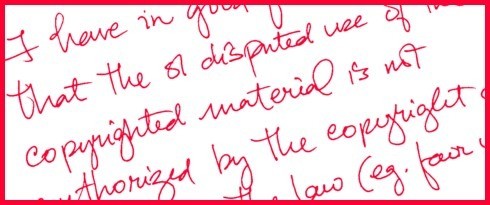 I have in good
that the sl disputed use of
copyrighted material is not
authorized by the copyright
the law (eg. fair